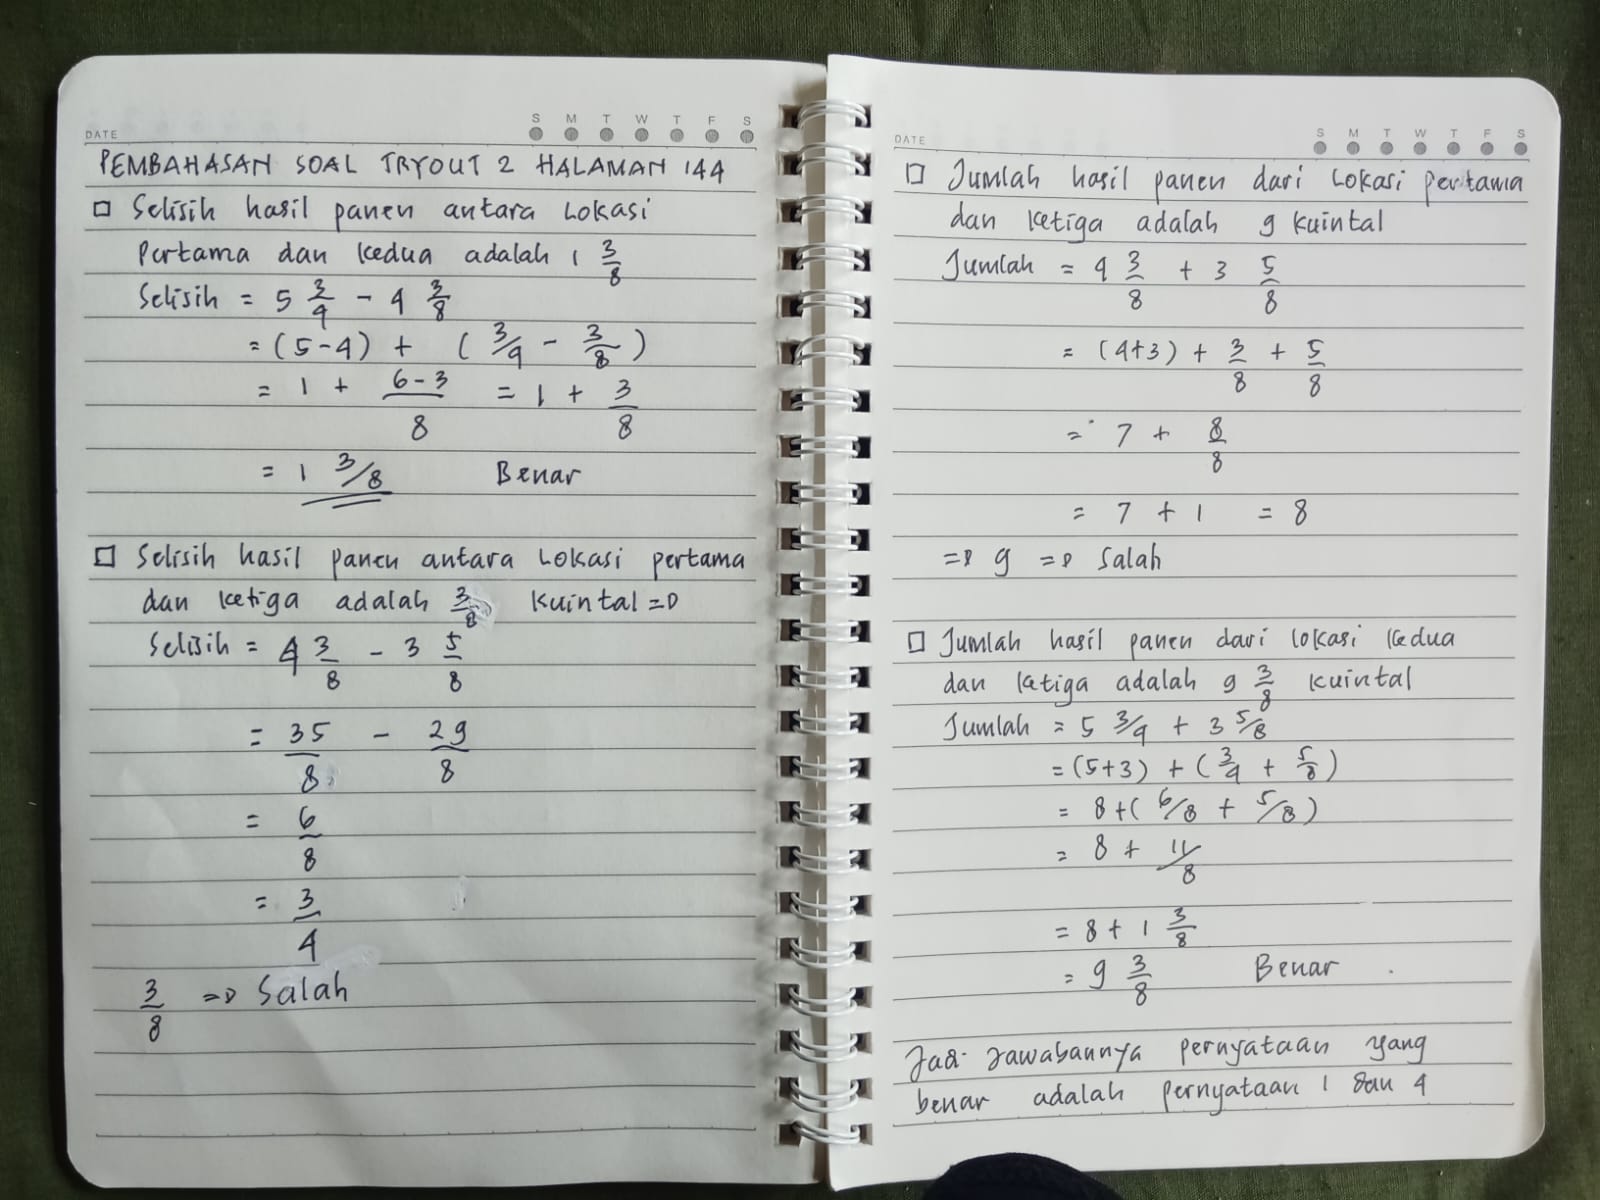 DATE
S M T W T F S
PEMBAHASAN SOAL TRYOUT 2 HALAMAN 144
□ Selisih hasil panen antara Lokasi
Pertama dan Kedua adalah 1 3/8
Selisih = 5 3/4 - 4 3/8
= (5-4) + (3/4 - 3/8)
= 1 + (6-3)/8 = 1 + 3/8
= 1 3/8 Benar
□ Selisih hasil panen antara Lokasi pertama
dan Ketiga adalah 3/8 Kuintal =D
Selisih = 4 3/8 - 3 5/8
= 35/8 - 29/8
= 6/8
= 3/4
3/8 =D Salah
DATE
S M T W T F S
□ Jumlah hasil panen dari Lokasi pertama
dan Ketiga adalah 9 Kuintal
Jumlah = 4 3/8 + 3 5/8
= (4+3) + 3/8 + 5/8
= 7 + 8/8
= 7 + 1 = 8
=D 9 =D Salah
□ Jumlah hasil panen dari Lokasi Kedua
dan Ketiga adalah 9 3/8 Kuintal
Jumlah = 5 3/4 + 3 5/8
= (5+3) + (3/4 + 5/8)
= 8 + (6/8 + 5/8)
= 8 + 11/8
= 8 + 1 3/8
= 9 3/8 Benar
Jadi Jawabannya pernyataan yang
benar adalah pernyataan 1 dan 4